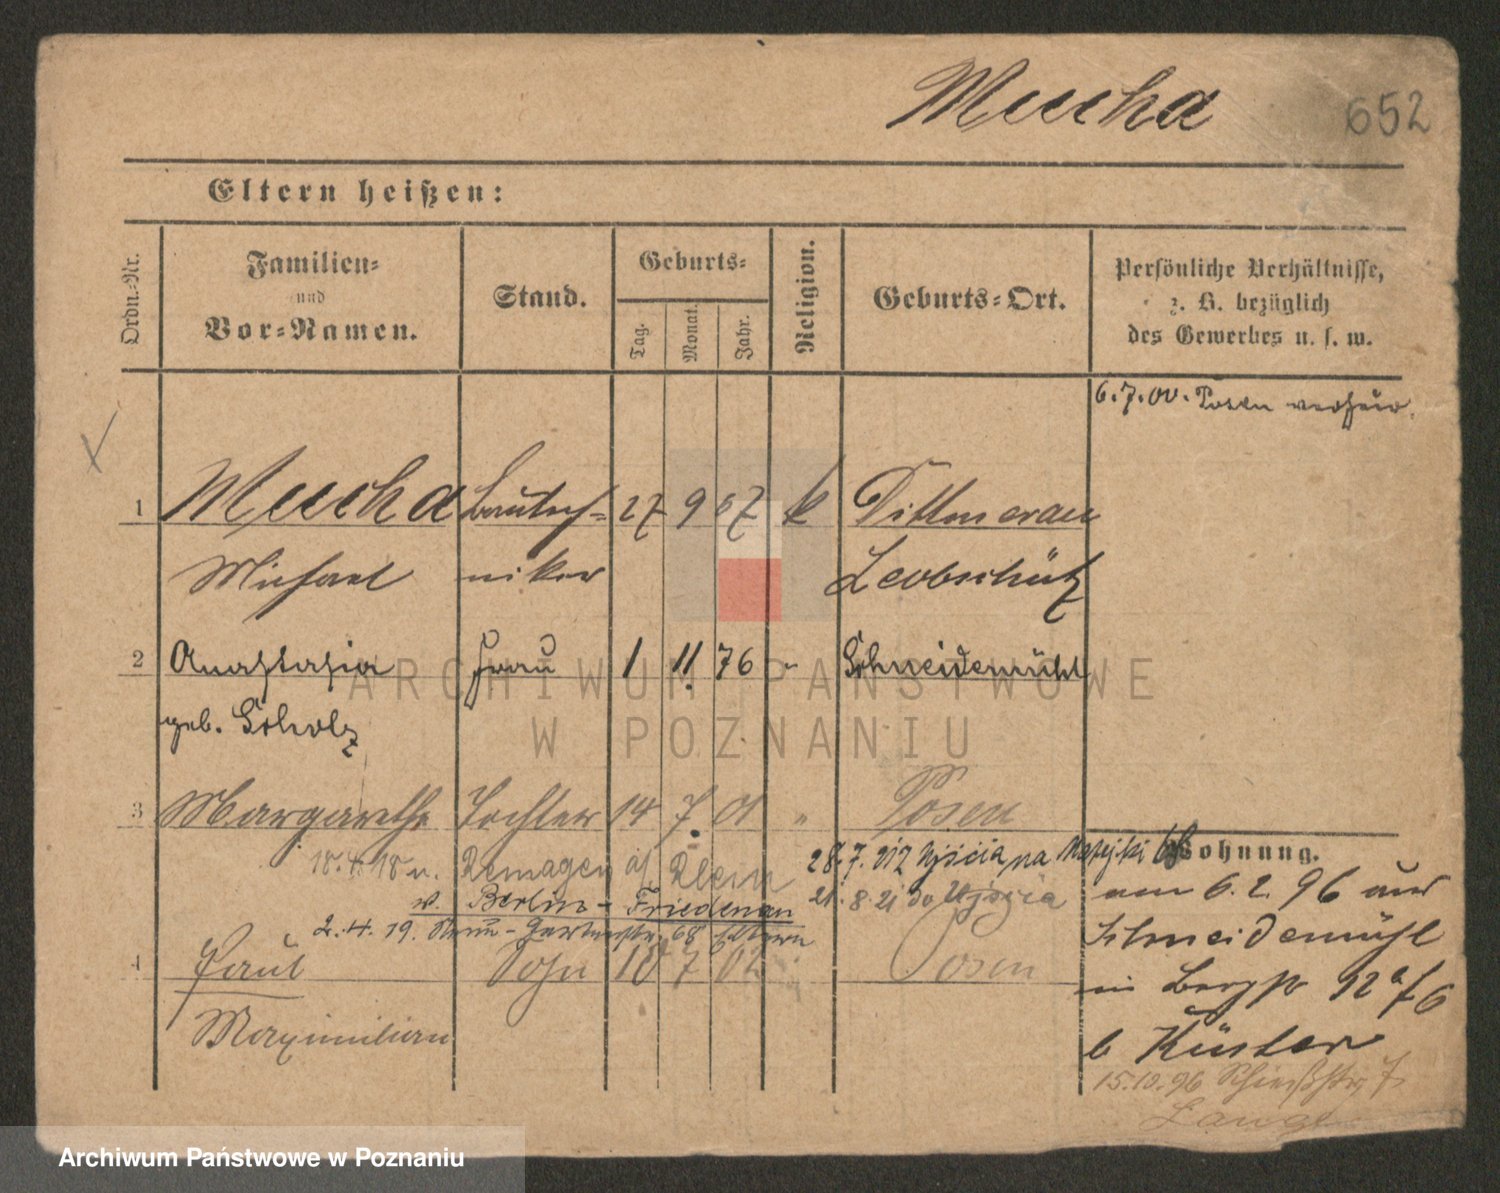 Mucha 652
Eltern heißen:
Ordn.-Nr. Familien- und Vor-Namen. Stand. Geburts- Tag. Monat. Jahr. Religion. Geburts-Ort. Persönliche Verhältnisse, z. B. bezüglich des Gewerbes u. s. w.
6.7.00. Posen
1 Mucha Bautech- 27 9 67 k Dittmerau
Michael niker Leobschütz
2 Anastasia Frau 1 11. 76 " Schneidemühl
geb. Scholz
3 Margarethe Tochter 14 7. 01 " Posen
Wohnung.
18.4.18 n. Remagen a/ Rhein 28.7. Ujścia na Matejki 68
v. Berlin-Friedenau 21.8.21 do Ujścia
am 6.2.96 aus
2.4.19. 68 Eltern
Schneidemühl
4 Paul Sohn 10 7 02 Posen
in Bergstr 12
Maximilian
b Küster
15.10.96 Schießstr. 7
Lange
ARCHIWUM PAŃSTWOWE
W POZNANIU
Archiwum Państwowe w Poznaniu